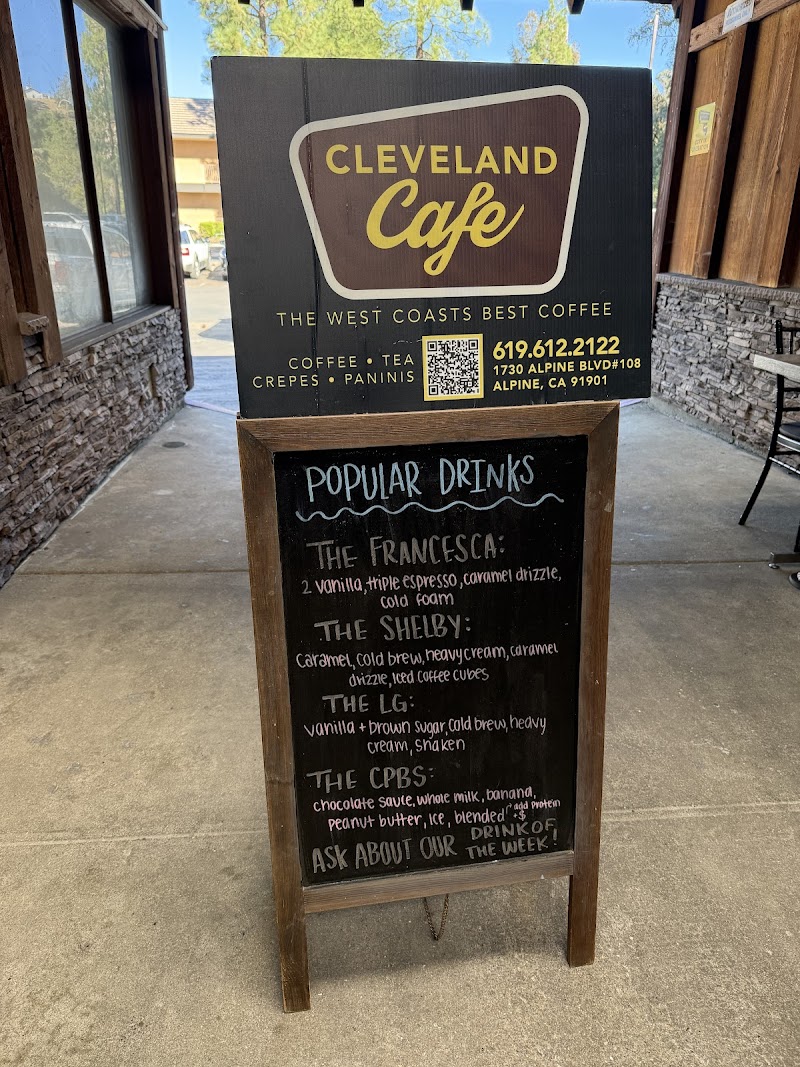 CLEVELAND
Cafe
THE WEST COASTS BEST COFFEE
COFFEE • TEA
CREPES • PANINIS
619.612.2122
1730 ALPINE BLVD#108
ALPINE, CA 91901
POPULAR DRINKS
THE FRANCESCA:
2 vanilla, triple espresso, caramel drizzle,
cold foam
THE SHELBY:
caramel, cold brew, heavy cream, caramel
drizzle, Iced coffee cubes
THE LG:
vanilla + brown sugar, cold brew, heavy
cream, shaken
THE CPBS:
chocolate sauce, whole milk, banana,
peanut butter, ice, blended add protein
+$
ASK ABOUT OUR DRINK OF
THE WEEK!